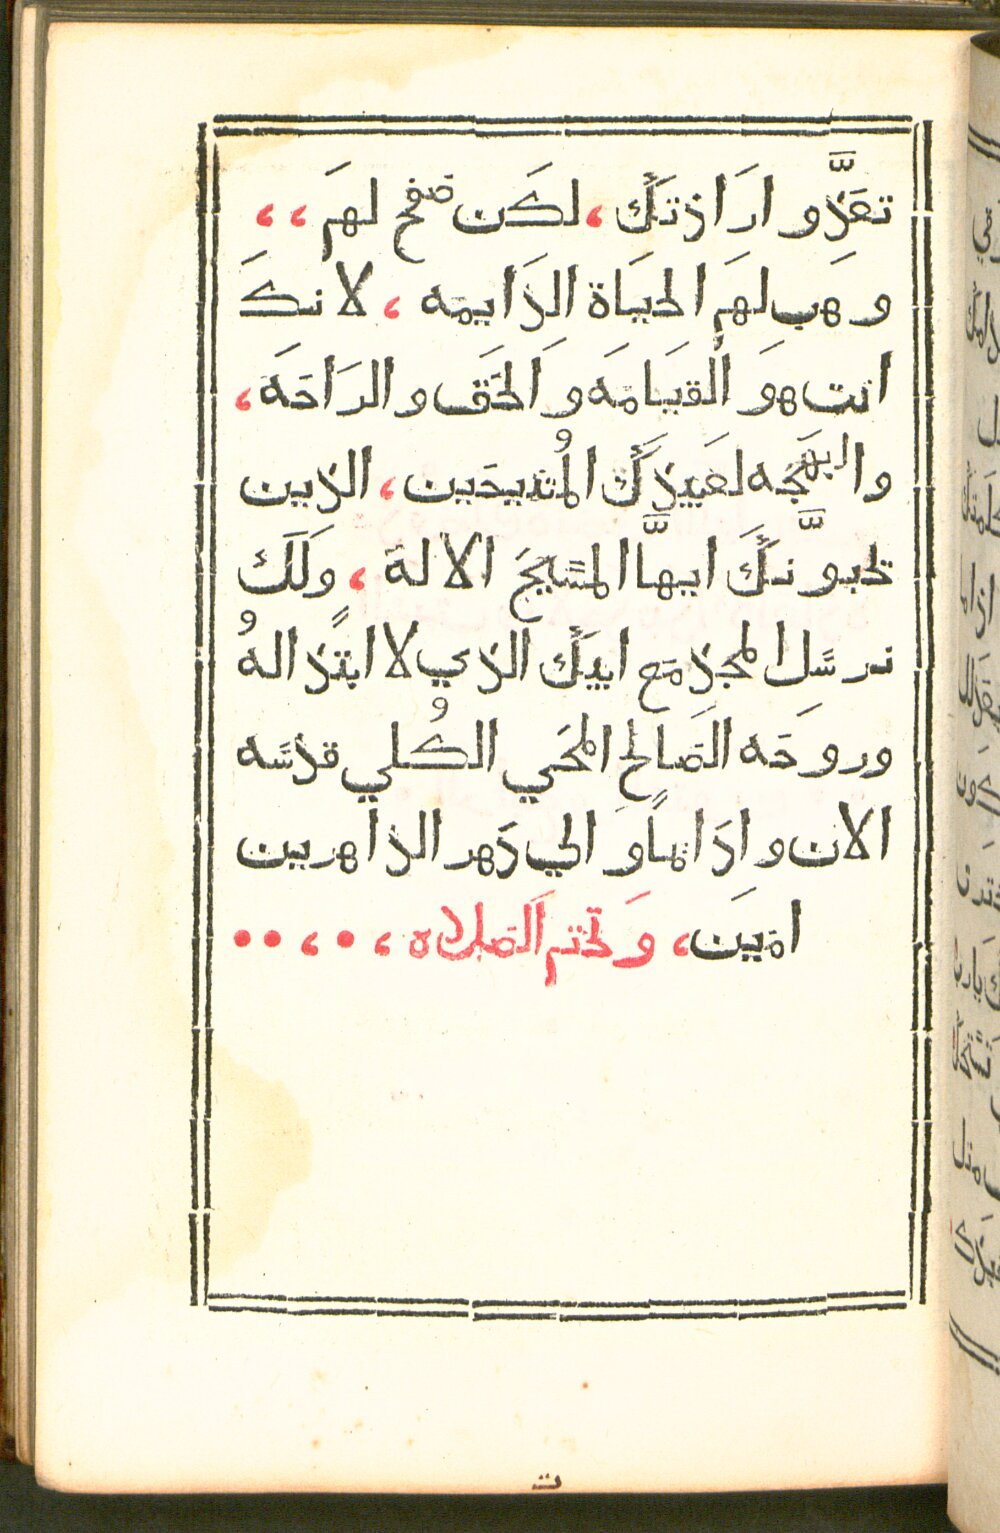 تعَدَّو ارَادتَكَ، لكَن صفح لهَم،،
وهَب لهَم الحَياة الدَايمَه، لانكَ
انت هوَ القيَامَه وَالحَق والرَاحَه،
والابهَجه لعَبيدَكَ المُتديحَين، الذين
تحَبوَّنكَ ايهاَّ المسَيحَ الالهَ، ولَكَ
نرسَل المجَد مَع ابيكَ الذي لا ابتدٍا لهُ
وروحَه الصَالح المحَيي الكُلي قدسَه
الان ودَايماً وَالي دَهر الداهرين
امَين، وَتختم الَصلاه،•،••
ت